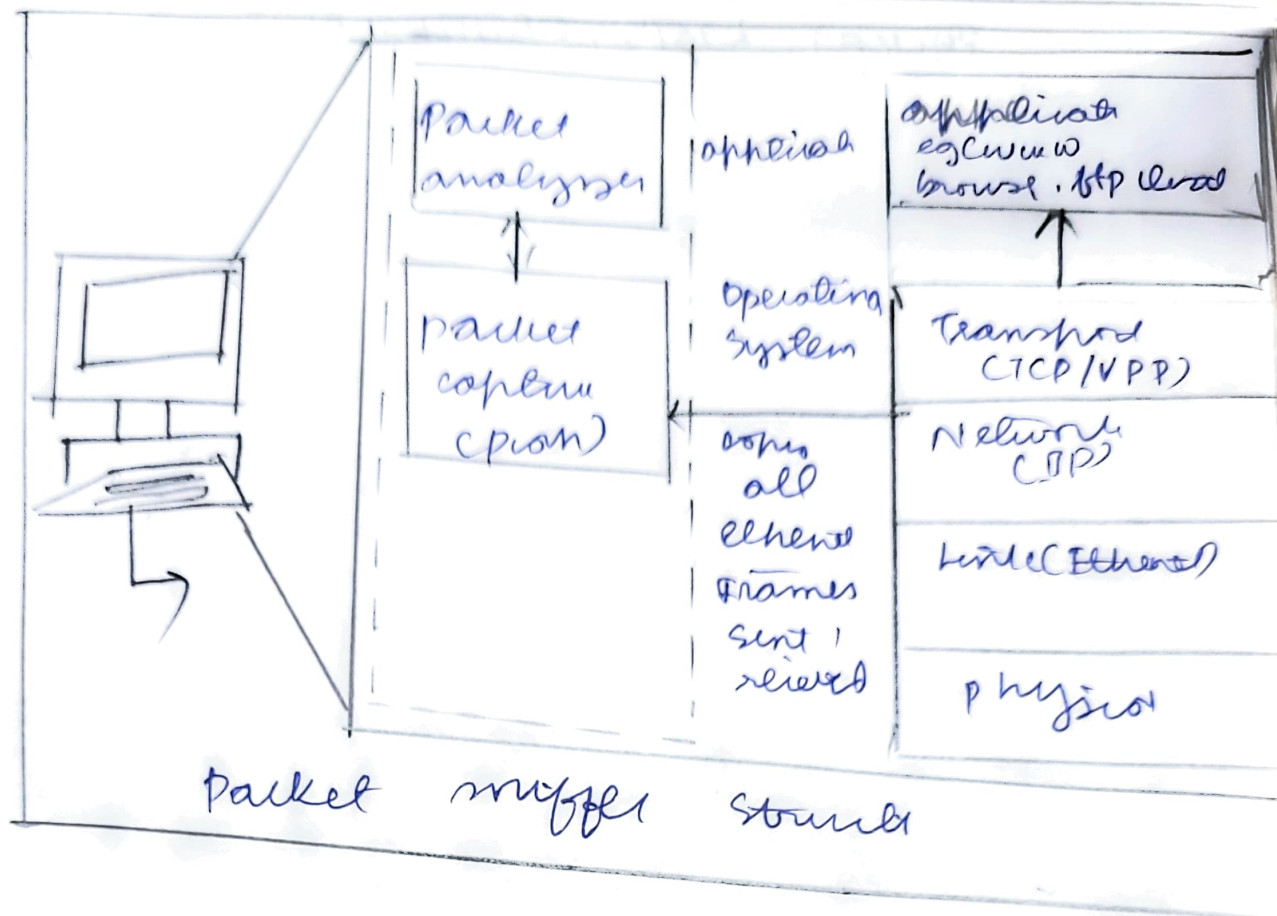 Packet
analyzer
packet
capture
(pcap)
application
operating
system
copy
all
ethernet
Frames
sent /
received
application
eg(www
browse, ftp client
Transport
(TCP/UDP)
Network
(IP)
Link (Ethernet)
physical
Packet sniffer structure